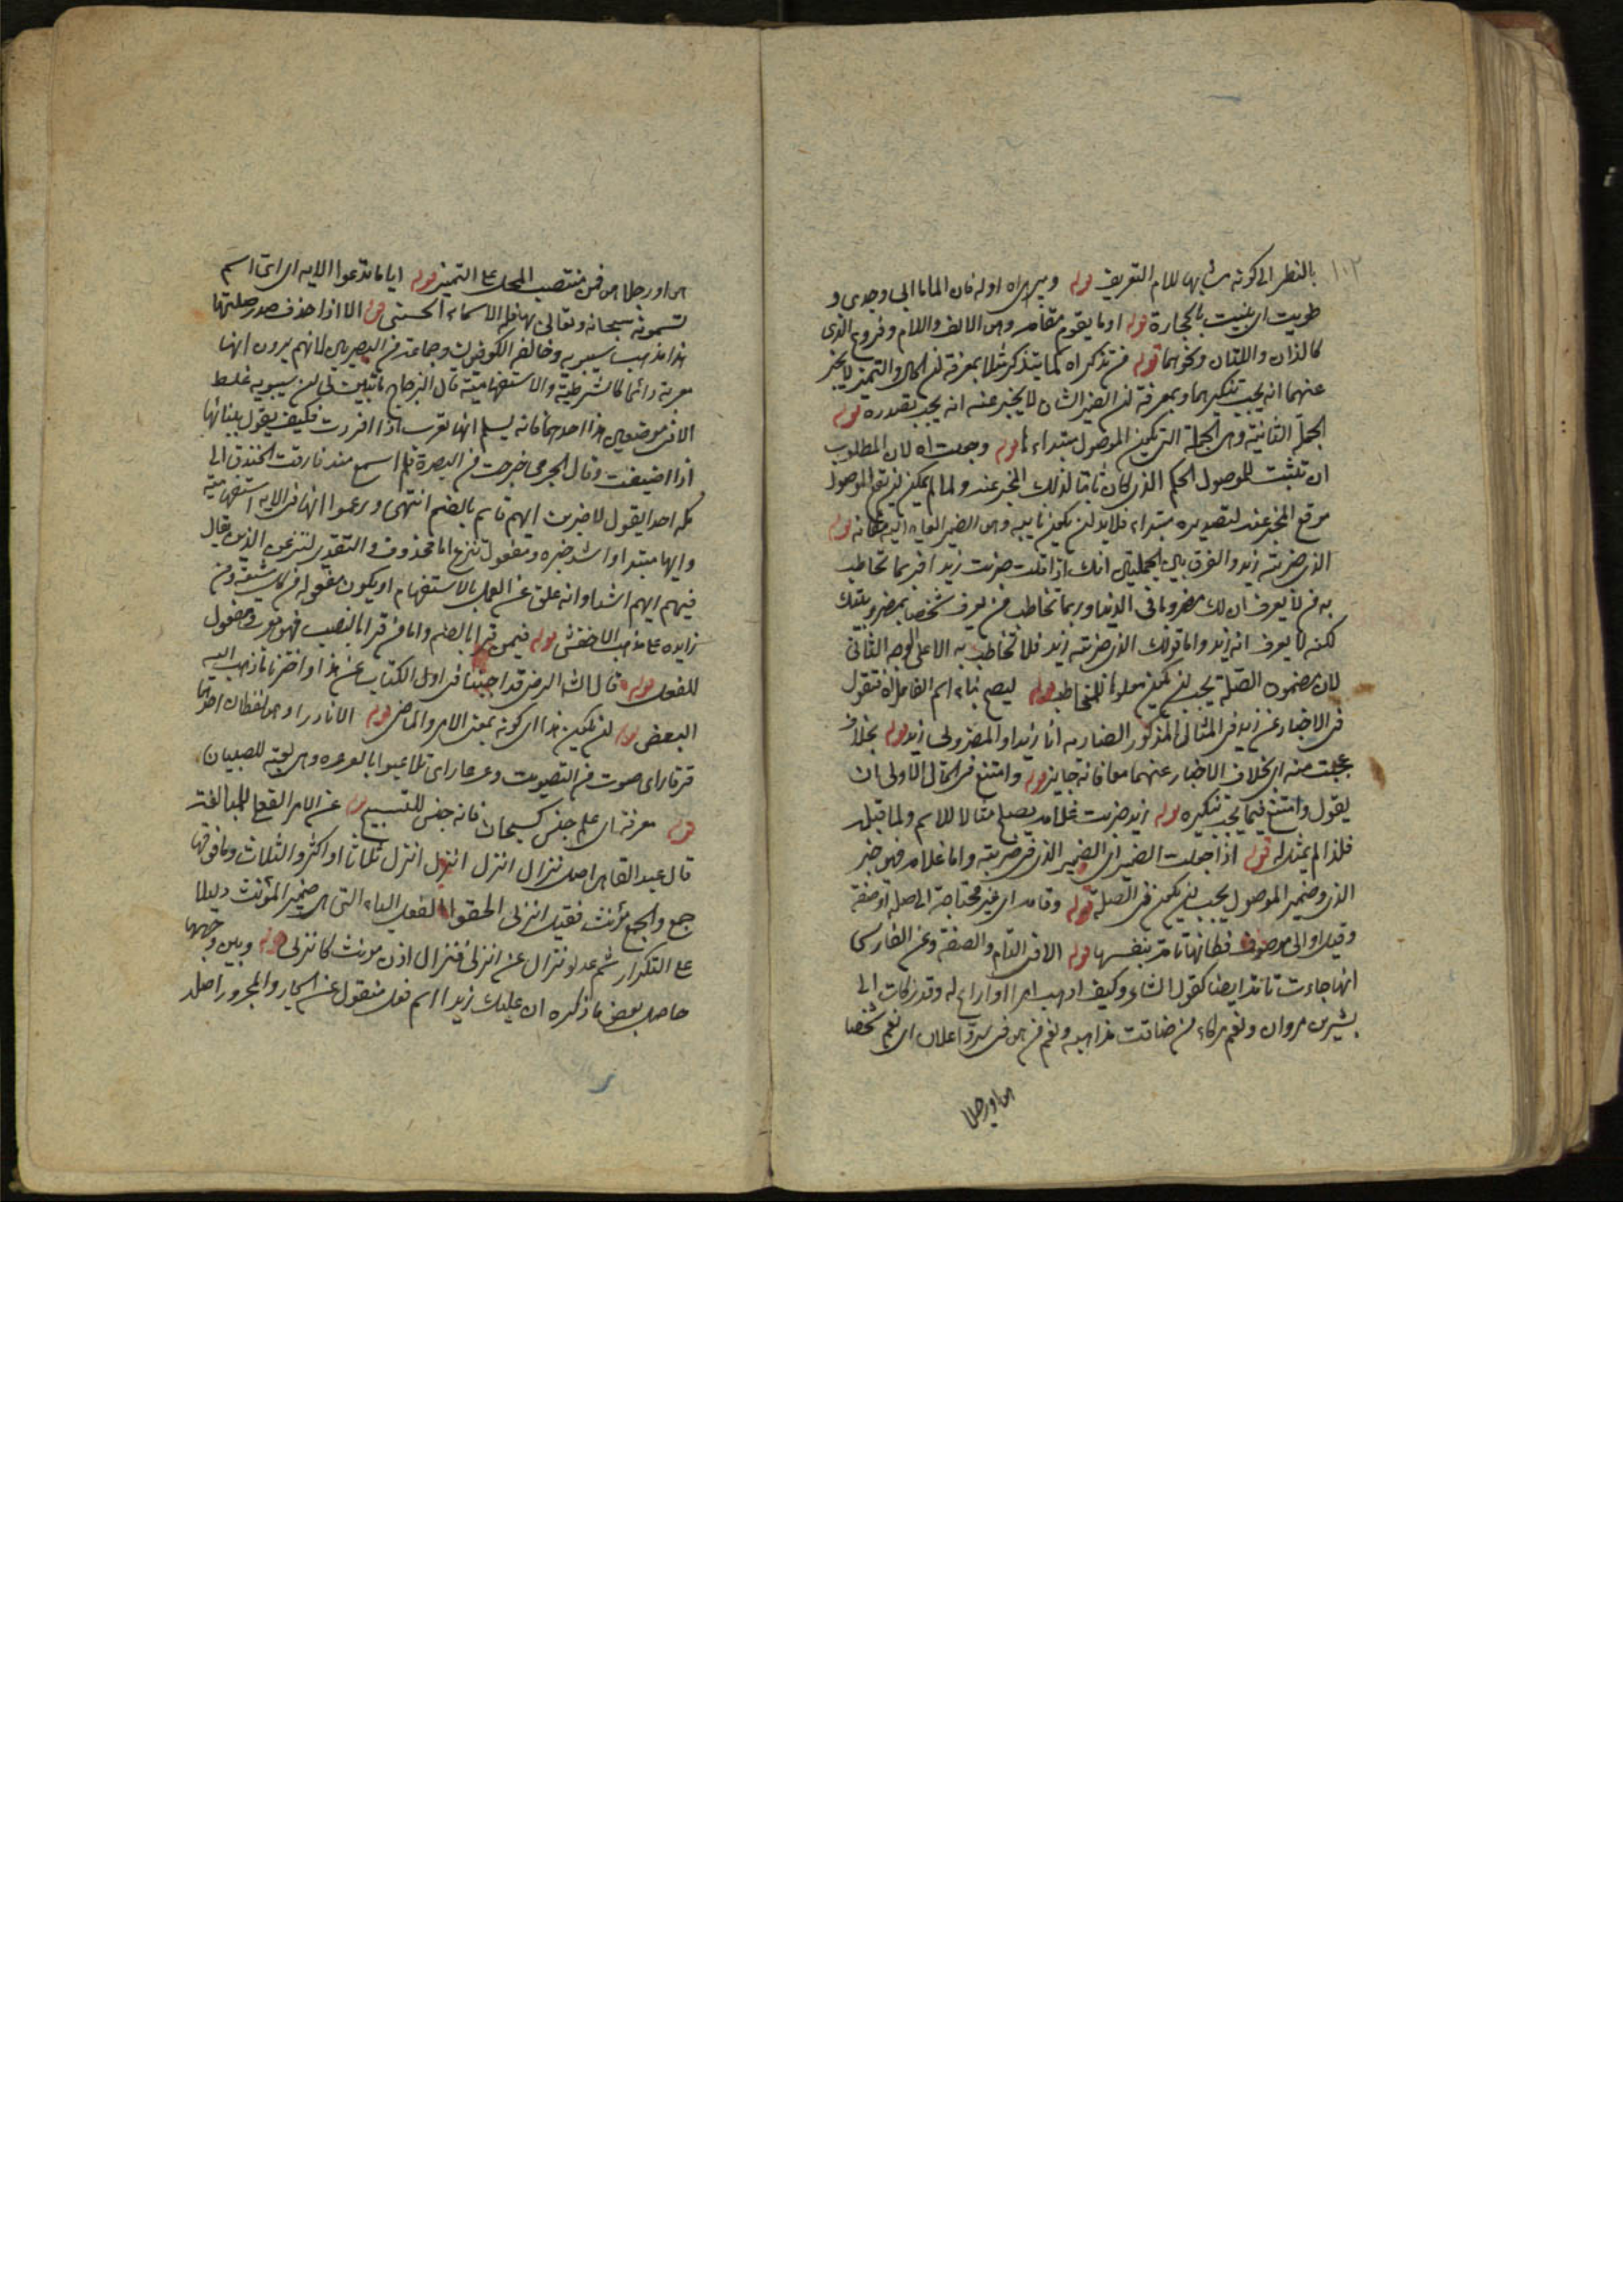 ١٠٢
بالنظر الى كونه مشابها للام التعريف قوله وبيراه اوله فان الماما ابي وجدي و
طويت اي بنيت بالحجارة قوله او ما يقوم مقامه وهو الالف واللام وفروع الذي
كالذان واللتان ونحوهما قوله من تذكر اه كما يتذكر مثلا بمعرفة ان الحال والتميز لا يخبر
عنهما انه يجب تنكيرهما وبمعرفة ان الضمير الشان لا يخبر عنه انه يجب تصدره قوله
الجملة الثانية وهي الجملة التي يكون الموصول مبتداء لها قوله وجعلت اه لان المطلوب
ان تثبت للموصول الحكم الذي كان ثابتا لذلك المخبر عنه ولما لم يمكن ان يقع الموصول
موقع المخبر عنه لتصديره مبتداء فلا بد ان يكون نايبه وهو الضمير العايد اليه مقامه قوله
الذي ضربته زيد والفرق بين الجملتين انك اذا قلت ضربت زيدا فربما تخاطب
به من لا يعرف ان لك مضروبا في الدنيا وربما تخاطب من يعرف شخصا بمضروبيتك
لكنه لا يعرف انه زيد واما قولك الذي ضربته زيد فلا تخاطب به الا على الوجه الثاني
لان مضمون الصلة يجب ان يكون معلوما للمخاطب قوله ليصح بناء اسم الفاعل اه فتقول
في الاخبار عن زيد في المثال المذكور الضاربه انا زيد او المضروب زيد قوله بخلاف
عجبت منه اي بخلاف الاخبار عنهما معا فانه جايز قوله وامتنع في الحال الاولى ان
يقول وامتنع فيما يجب تنكيره قوله زيد ضربت غلامه يصلح مثالا للاسم ولما قبله
فلذا لم يمثل له قوله اذا جعلت الضمير اي الضمير الذي في ضربته واما غلامه فهو خبر
الذي وضمير الموصول يجب ان يكون في الصلة قوله وتامة اي غير محتاجة الى صلة او صفة
وقيل اوالى موصوف فكانها تامة بنفسها قوله الا في التام والصفة وعن الفارسي
انها جاءت تامة ايضا كقول الشاعر وكيف ارهب امرا او اراع له وقد زكات الى
بشر بن مروان ونعم مزكاء من ضاقت مذاهبه ونعم من هو في سر واعلان اي نعم شخصا
هو او رجلا
هو او رجلا هو فمن منتصب المحل على التميز قوله ايا ما تدعوا الاية اي اي اسم
تسمونه سبحانه وتعالى بها فله الاسماء الحسنى قوله الا اذا حذف صدر صلتها
هذا مذهب سيبويه وخالفه الكوفيون وجماعة من البصريين لانهم يرون انها
معربة دائما كالشرطية والاستفهامية قال الزجاج ما تبين لي ان سيبويه غلط
الا في موضعين هذا احدهما فانه يسلم انها تعرب اذا افردت فكيف يقول ببنائها
اذا اضيفت وقال الجرمي خرجت من البصرة فلم اسمع منذ فارقت الخندق الى
مكة احدا يقول لاضربن ايهم قايم بالضم انتهى وزعموا انها في الاية استفهامية
وايها مبتداء واشد خبره ومفعول ننزع اما محذوف والتقدير لننزعن الذين يقال
فيهم ايهم اشد او انه علق عن العمل بالاستفهام او يكون مفعوله من كل شيعة ومن
زايدة على مذهب الاخفش قوله فيمن قرا بالضم واما من قرا بالنصب فهو معرب ومفعول
للفعل قوله قال الشارح الرضي قد اجبنا في اول الكتاب عن هذا واخترنا ما ذهب اليه
البعض قوله ان يكون هذا اي كونه بمعنى الامر والماضي قوله الا نادرا وهو لفظان احدهما
قرقار اي صوت من التصويت وعرعار اي تلاعبوا بالعرعرة وهي لعبة للصبيان
قوله معرفة اي علم جنس كسبحان فانه جنس للتسبيح قوله عن الامر الفعلي للمبالغة
قال عبد القاهر اصل نزال انزل انزل انزل ثلاثا او اكثر والثلاث وما فوقها
جمع والجمع مؤنث فقيل انزلي الحقوا الفعل الياء التي هي ضمير المؤنث دليلا
على التكرار ثم عدلوا نزال عن انزلي فنزال اذن مؤنث كانزلي قوله وبين وجهها
حاصل بعض ما ذكره ان عليك زيدا اسم فعل منقول عن الجار والمجرور اصله